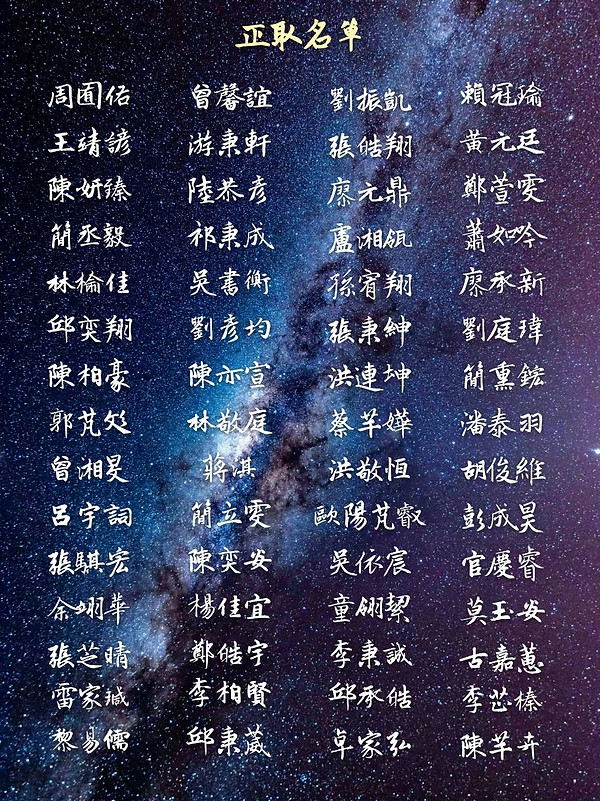 正取名單
周囿佑 曾馨誼 劉振凱 賴冠瑜
王靖諺 游秉軒 張皓翔 黃元廷
陳妍臻 陸恭彥 廖元鼎 鄭萱雯
簡丞毅 祁秉成 盧湘瓴 蕭如吟
林榆佳 吳書衡 孫宥翔 廖承新
邱奕翔 劉彥均 張秉紳 劉庭瑋
陳柏豪 陳亦宣 洪連坤 簡熏鋐
郭芃彣 林敬庭 蔡芊嬅 潘泰羽
曾湘旻 蔣淇 洪敬恒 胡俊維
呂宇詞 簡立雯 歐陽芃叡 彭成昊
張騏宏 陳奕安 吳依宸 官慶睿
余翊華 楊佳宜 童翎絜 莫玉安
張芝晴 鄭皓宇 李秉誠 古嘉蕙
雷家瑊 李柏賢 邱承皓 李芷榛
黎易儒 邱秉葳 卓家弘 陳芊卉